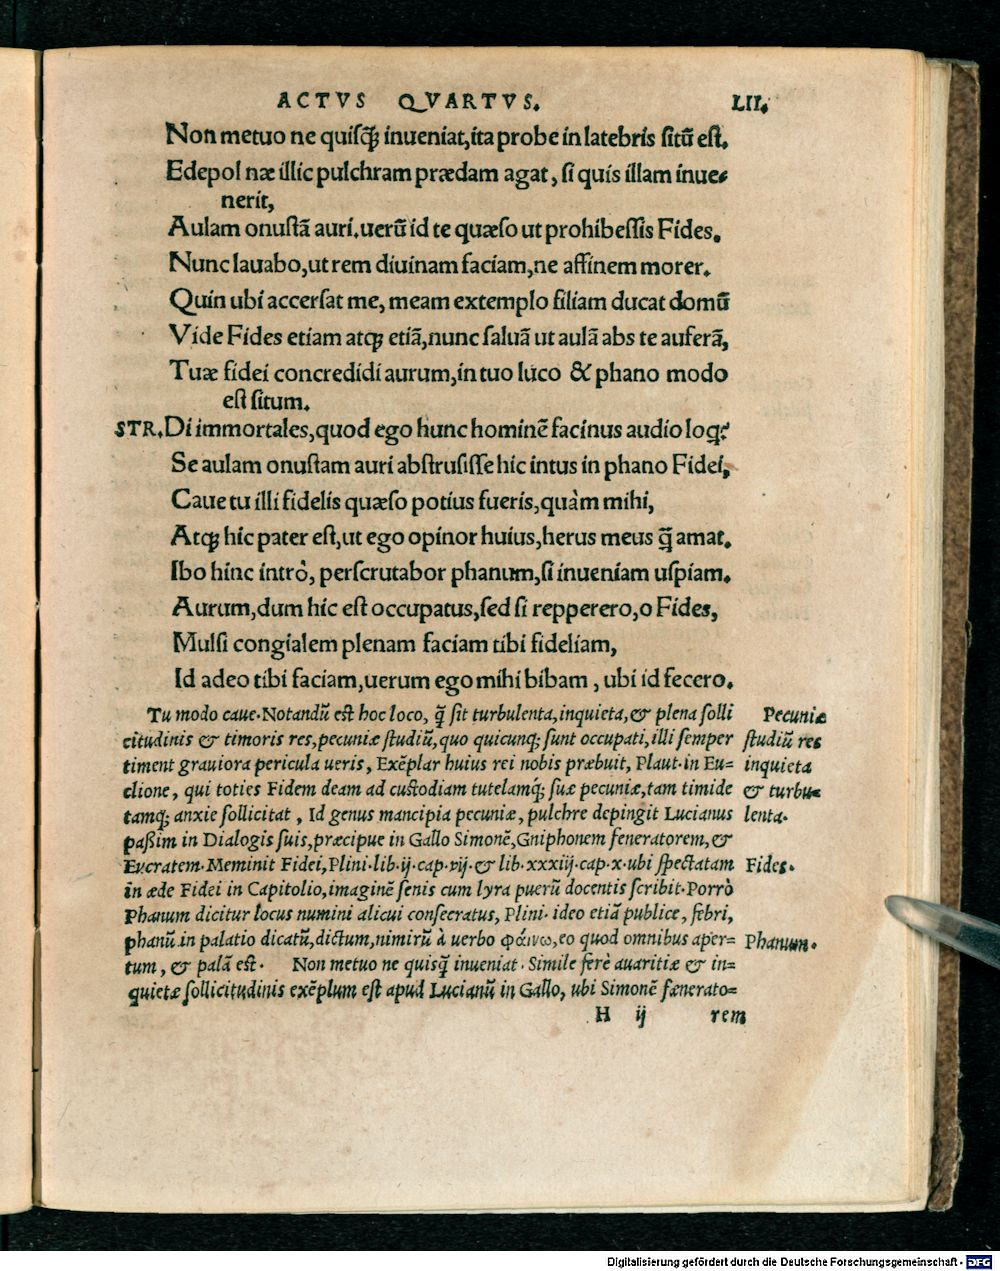 ACTVS QVARTVS. LII.
Non metuo ne quisq̃ inueniat,ita probe in latebris sitũ est.
Edepol næ illic pulchram prædam agat, si quis illam inue-
nerit,
Aulam onustã auri.uerũ id te quæso ut prohibessis Fides.
Nunc lauabo,ut rem diuinam faciam,ne affinem morer.
Quin ubi accersat me, meam extemplo filiam ducat domũ
Vide Fides etiam atq; etiã,nunc saluã ut aulã abs te auferã,
Tuæ fidei concredidi aurum,in tuo luco & phano modo
est situm.
STR.Di immortales,quod ego hunc hominẽ facinus audio loq?
Se aulam onustam auri abstrusisse hic intus in phano Fidei,
Caue tu illi fidelis quæso potius fueris,quàm mihi,
Atq; hic pater est,ut ego opinor huius,herus meus q̃ amat.
Ibo hinc intrò, perscrutabor phanum,si inueniam uspiam.
Aurum,dum hic est occupatus,sed si repperero,o Fides,
Mulsi congialem plenam faciam tibi fideliam,
Id adeo tibi faciam,uerum ego mihi bibam, ubi id fecero.
Tu modo caue. Notandũ est hoc loco, q̃ sit turbulenta,inquieta,& plena solli
citudinis & timoris res,pecuniæ studiũ,quo quicunq; sunt occupati,illi semper
timent grauiora pericula ueris, Exẽplar huius rei nobis præbuit, Plaut. in Eu=
clione, qui toties Fidem deam ad custodiam tutelamq́; suæ pecuniæ,tam timide
tamq́; anxie sollicitat, Id genus mancipia pecuniæ, pulchre depingit Lucianus
paßim in Dialogis suis,præcipue in Gallo Simonẽ,Gniphonem feneratorem,&
Eucratem. Meminit Fidei,Plini. lib. ij. cap. vij. & lib. xxxiij. cap. x. ubi spectatam
in æde Fidei in Capitolio,imaginẽ senis cum lyra puerũ docentis scribit. Porrò
Phanum dicitur locus numini alicui consecratus, Plini. ideo etiã publice, febri,
phanũ in palatio dicatũ,dictum,nimirũ à uerbo φαίνω,eo quod omnibus aper=
tum, & palã est. Non metuo ne quisq̃ inueniat. Simile ferè auaritiæ & in=
quietæ sollicitudinis exẽplum est apud Lucianũ in Gallo, ubi Simonẽ fænerato=
H ij rem
Pecuniæ
studiũ res
inquieta
& turbu=
lenta.
Fides.
Phanum.
Digitalisierung gefördert durch die Deutsche Forschungsgemeinschaft - DFG